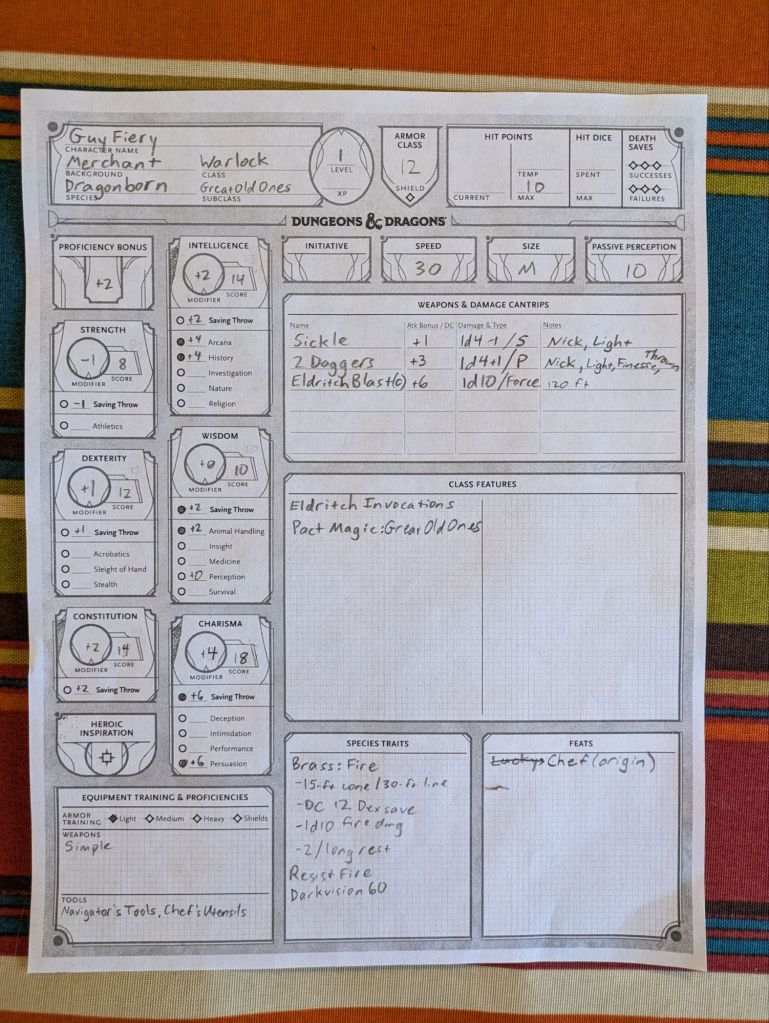 Guy Fiery
CHARACTER NAME
Merchant Warlock
BACKGROUND CLASS
Dragonborn Great Old Ones
SPECIES SUBCLASS
1
LEVEL
XP
ARMOR
CLASS
12
SHIELD
HIT POINTS
TEMP
10
CURRENT MAX
HIT DICE
SPENT
MAX
DEATH
SAVES
SUCCESSES
FAILURES
DUNGEONS & DRAGONS
PROFICIENCY BONUS
+2
STRENGTH
-1 8
MODIFIER SCORE
-1 Saving Throw
Athletics
DEXTERITY
+1 12
MODIFIER SCORE
+1 Saving Throw
Acrobatics
Sleight of Hand
Stealth
CONSTITUTION
+2 14
MODIFIER SCORE
+2 Saving Throw
HEROIC
INSPIRATION
INTELLIGENCE
+2 14
MODIFIER SCORE
+2 Saving Throw
+4 Arcana
+4 History
Investigation
Nature
Religion
WISDOM
+0 10
MODIFIER SCORE
+2 Saving Throw
+2 Animal Handling
Insight
Medicine
+0 Perception
Survival
CHARISMA
+4 18
MODIFIER SCORE
+6 Saving Throw
Deception
Intimidation
Performance
+6 Persuasion
EQUIPMENT TRAINING & PROFICIENCIES
ARMOR
TRAINING Light Medium Heavy Shields
WEAPONS
Simple
TOOLS
Navigator's Tools, Chef's Utensils
INITIATIVE
SPEED
30
SIZE
M
PASSIVE PERCEPTION
10
WEAPONS & DAMAGE CANTRIPS
Name Atk Bonus / DC Damage & Type Notes
Sickle +1 1d4-1/S Nick, Light
2 Daggers +3 1d4+1/P Nick, Light, Finesse, Thrown
Eldritch Blast(c) +6 1d10/Force 120 ft
CLASS FEATURES
Eldritch Invocations
Pact Magic: Great Old Ones
SPECIES TRAITS
Brass: Fire
-15-ft cone/30-ft line
-DC 12 Dex save
-1d10 fire dmg
-2/long rest
Resist Fire
Darkvision 60
FEATS
Lucky Chef (origin)